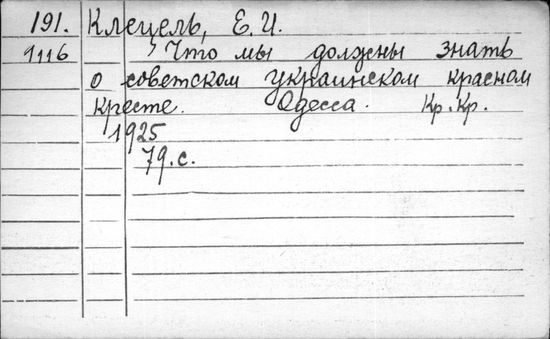 191. Клецель, Е. И.
1116 Что мы должны знать
о советском украинском красном
кресте. Одесса. Кр. Кр.
1925
79. с.